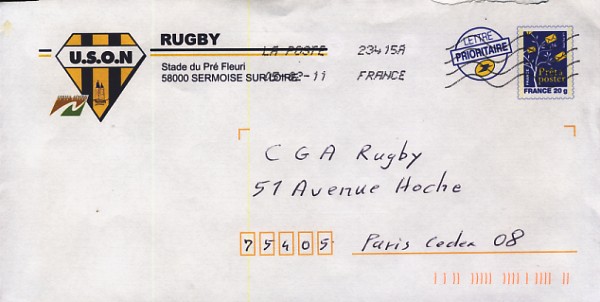 U.S.O.N
RUGBY
Stade du Pré Fleuri
58000 SERMOISE SUR LOIRE
LA POSTE 23415A
FRANCE
LETTRE
PRIORITAIRE
Prêt à
poster
FRANCE 20 g
CGA Rugby
51 Avenue Hoche
75405 Paris Cedex 08